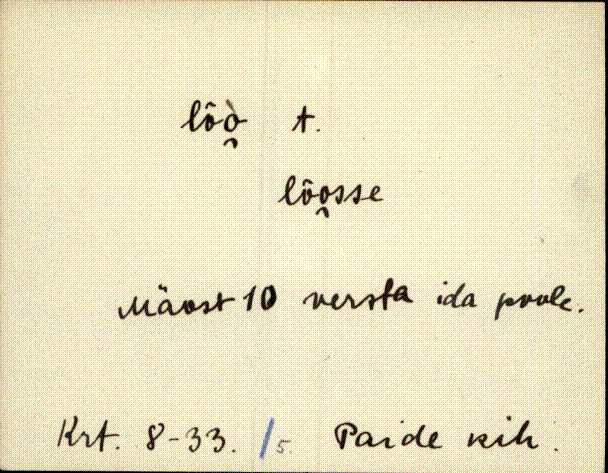 lôò̯ t.
lôo̯sse
Mäost 10 versta ida poole.
Krt. 8-33. /5. Paide kih.